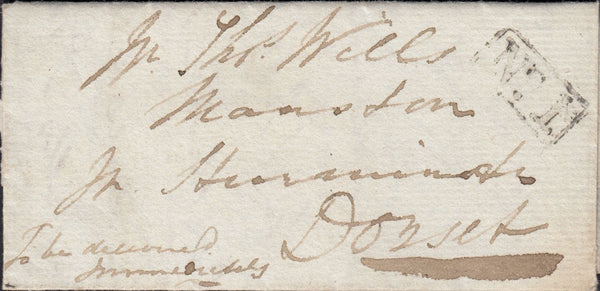 Mr. Thos. Wills
Manston
Nr. Sturminster
Dorset
To be delivered
immediately
No. 1